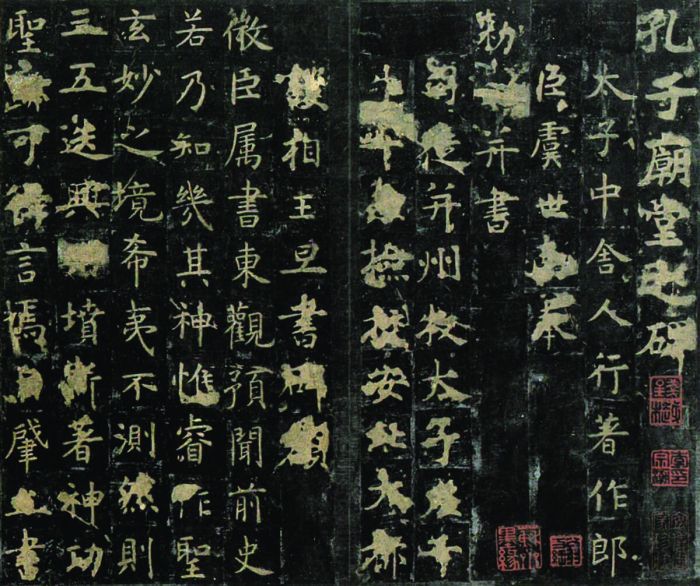 孔子廟堂之碑
太子中舍人行著作郎
臣虞世南奉
勅撰并書
司徒并州牧太子左千
牛率兼撿校安北大都
護相王旦書碑額
微臣属書東觀預聞前史
若乃知幾其神惟睿作聖
玄妙之境希夷不測然則
三五迭興墳斯著神功
聖迹可得言焉自肇立書